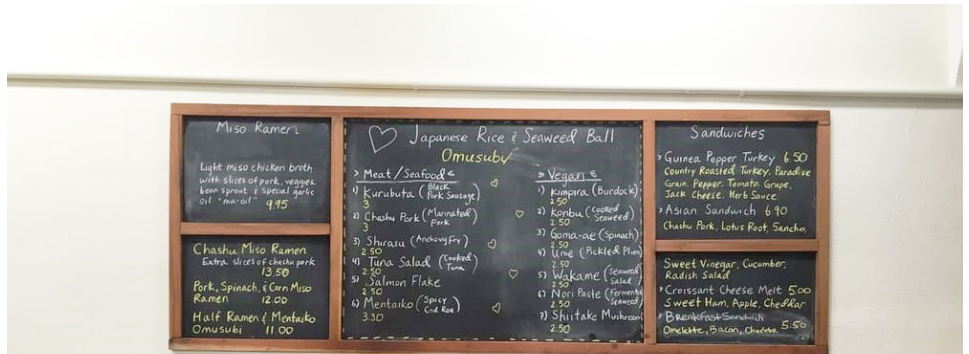 Miso Ramen
Light miso chicken broth
with slices of pork, veggies,
bean sprout & special garlic
oil "ma-oil" 9.95
Chashu Miso Ramen
Extra slices of chashu pork
13.50
Pork, Spinach, & Corn Miso
Ramen 12.00
Half Ramen & Mentaiko
Omusubi 11.00
Japanese Rice & Seaweed Ball
Omusubi
Meat/Seafood
1) Kurobuta (Black Pork Sausage)
3
2) Chashu Pork (Marinated Pork
3
3) Shirasu (Anchovy Fry)
2.50
4) Tuna Salad (Cooked Tuna
2.50
5) Salmon Flake
2.50
6) Mentaiko (Spicy Cod Roe)
3.30
Vegan
1) Kimpira (Burdock)
2.50
2) Konbu (Cooked Seaweed)
2.50
3) Goma-ae (Spinach)
2.50
4) Ume (Pickled Plum)
2.50
5) Wakame (Seaweed Salad)
2.50
6) Nori Paste (Fermented Seaweed)
2.50
7) Shiitake Mushroom
2.50
Sandwiches
Guinea Pepper Turkey 6.50
Country Roasted Turkey, Paradise
Grain, Pepper, Tomato Grape,
Jack Cheese, Herb Sauce
Asian Sandwich 6.90
Chashu Pork, Lotus Root, Sancho,
Sweet Vinegar, Cucumber,
Radish Salad
Croissant Cheese Melt 5.00
Sweet Ham, Apple, Cheddar
Breakfast Sandwich
Omelette, Bacon, Cheddar 5.50